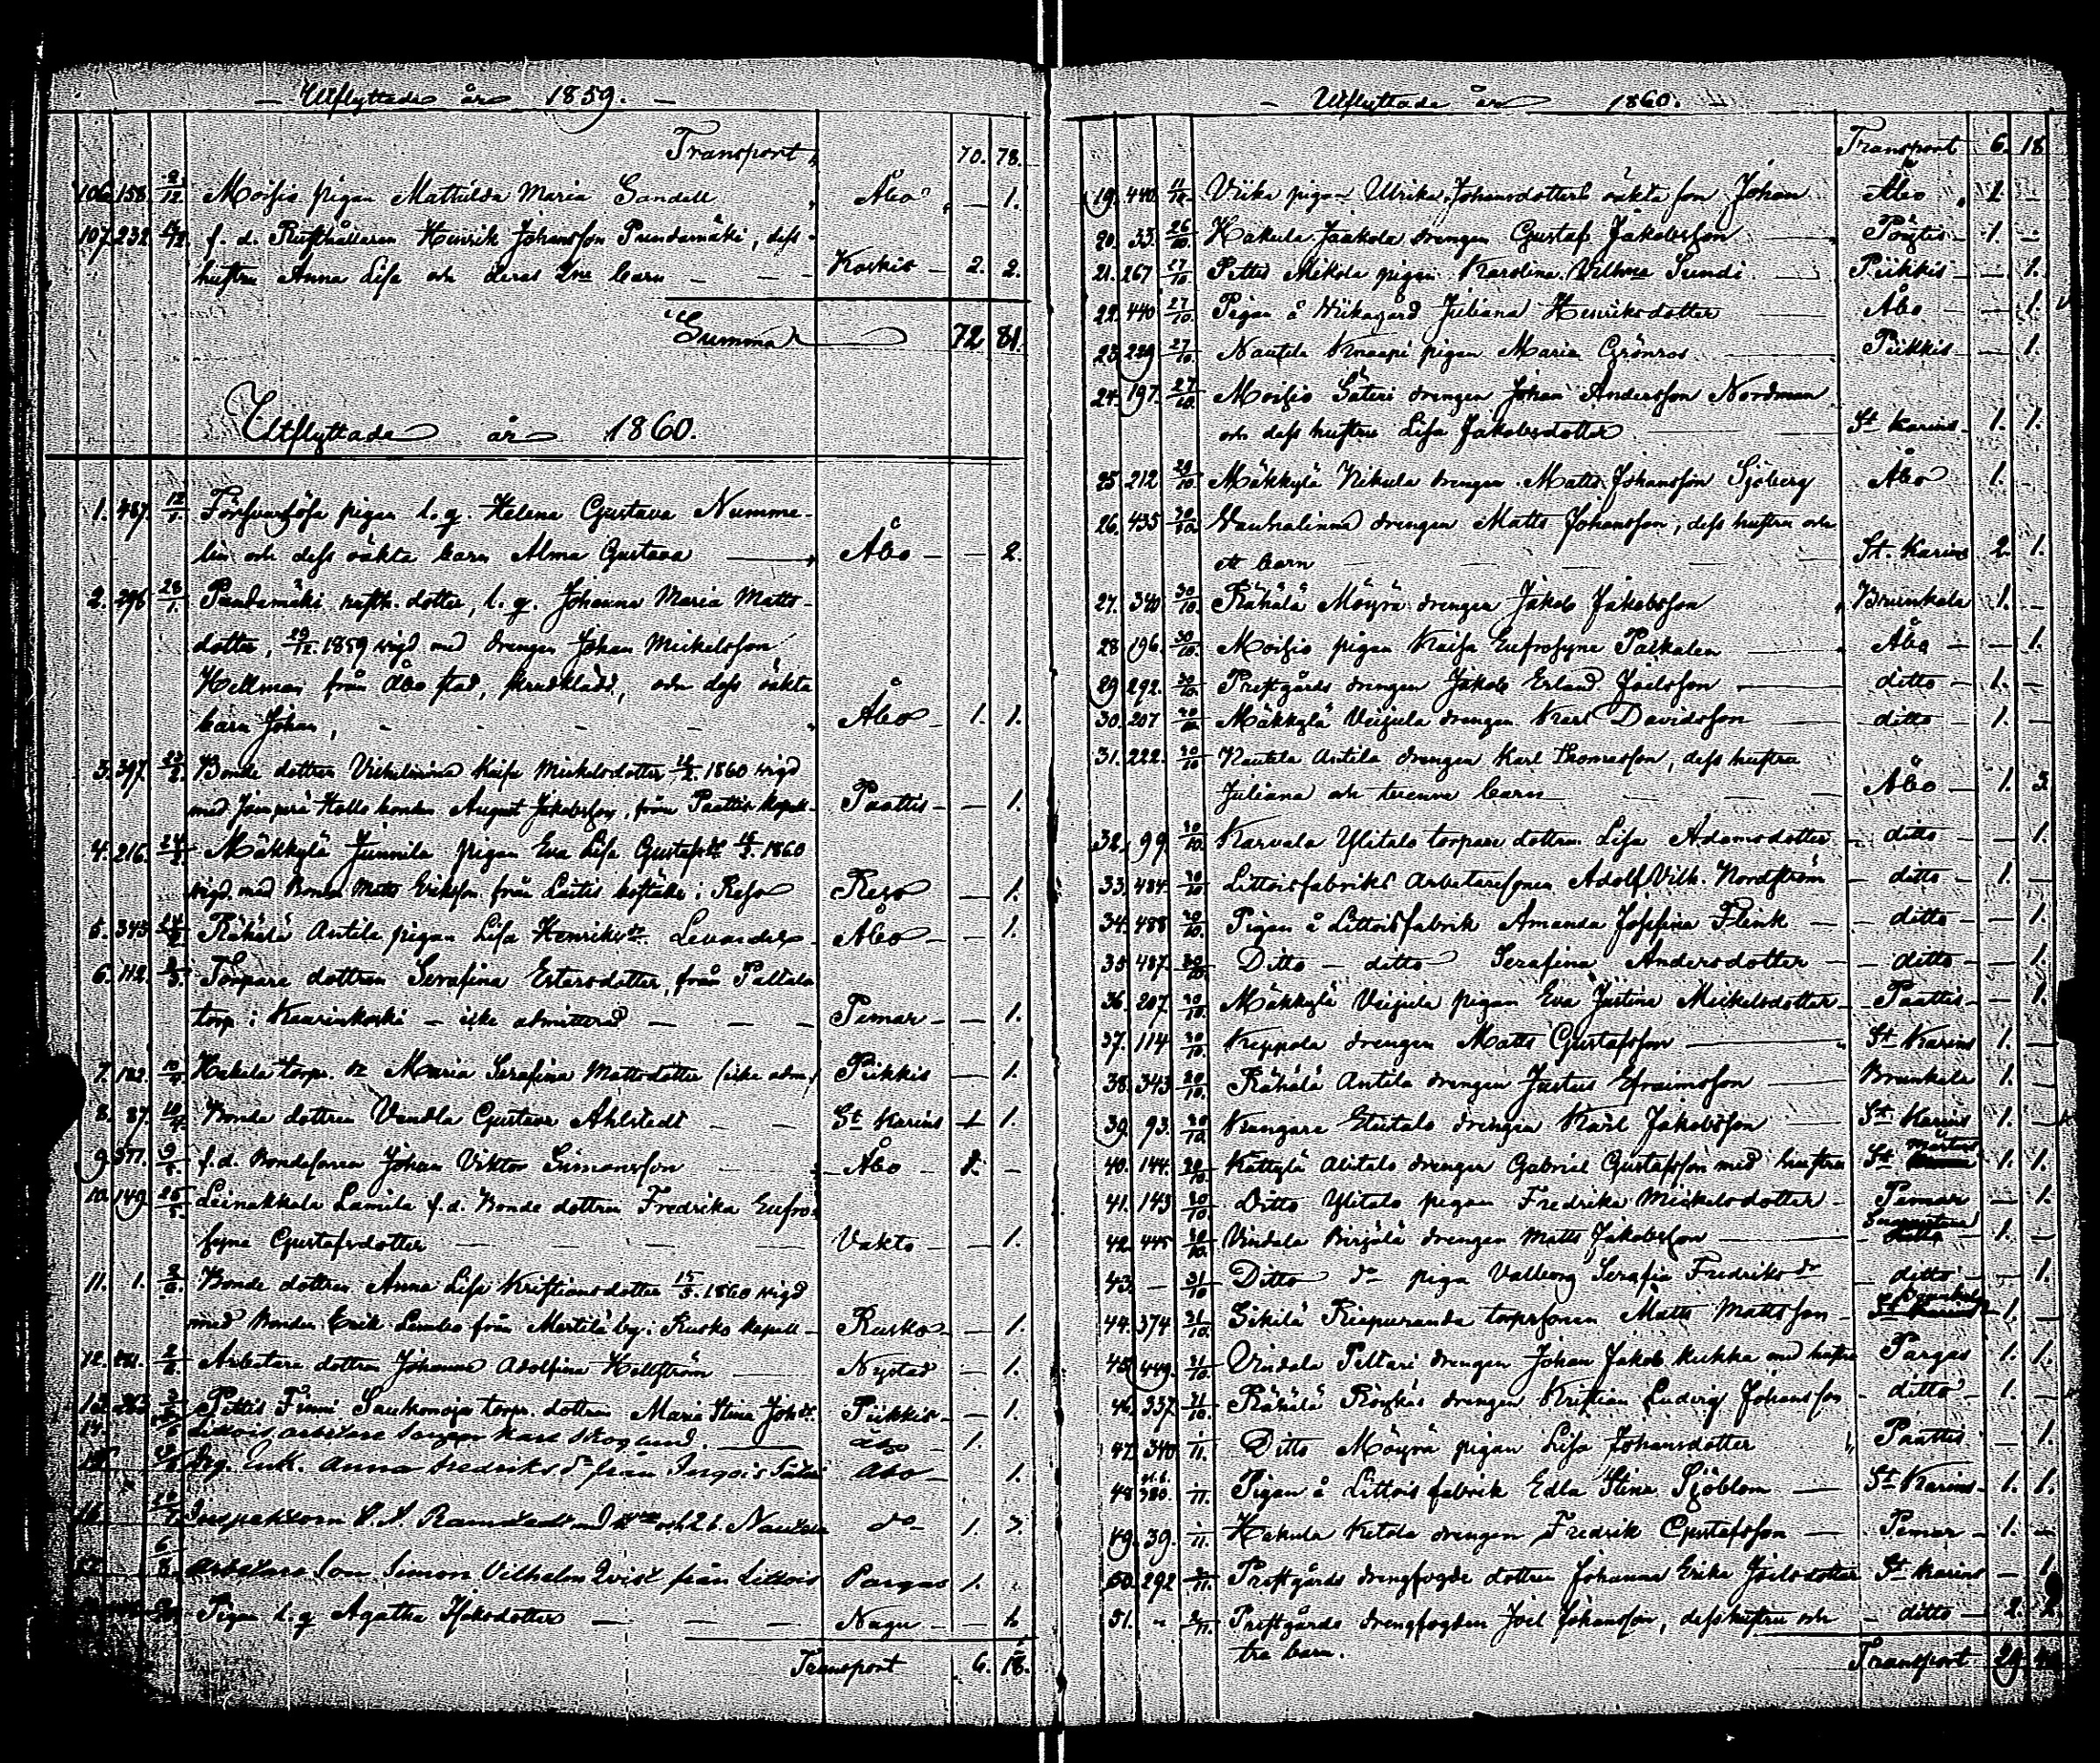 — Utflyttade år 1859. —
Transport, 70. 78.
106. 158. 2/12 Moisio pigan Mathilda Maria Sandell Åbo — 1.
107. 232. f. d. Rusthållaren Henrik Johansson Pundamäki, dess
hustru Anna Lisa och deras 2ne barn — Koskis — 2. 2.
Summa 72 81.
Utflyttade år 1860.
1. 487. 12/1. Försvarslösa pigan l. q. Helena Gustava Numme-
lin och dess oäkta barn Alma Gustava Åbo — — 2.
2. 296 28/1. Pundamäki rusth. dotter, l. q. Johanna Maria Matts-
dotter, 29/12. 1859 vigd med drengen Johan Mickelsson
Hellman från Åbo stad, och dess oäkta
barn Johan, Åbo — 1. 1.
3. 397. 23/2. Bonde dottren Kaisa Mickelsdotter 1860 vigd
med bonden August Jakobsson, från Paattis kapell — Paattis — — 1.
4. 216. 24/2. Mäkkylä Junnila pigan Eva Lisa Gustafsdr 1860
vigd med Bonden Matts Eriksson från i Reso Reso — 1.
5. 343 Rähälä Antila pigan Lisa Henriksdr Åbo — — 1.
6. 112. Torpare dottren Serafina Estersdotter, från Paltala
torp i Kaarinkoski — icke admitterad — — — Pemar — — 1.
7. 182. Hakula torp. dr Maria Serafina Mattsdotter (icke adm.) Piikkis — 1.
8. 87. 10/4. Bonde dottren Vendla Gustava Ahlstedt — — St Karins 1.
9. 377. 9/5. f.d. Bondesonen Johan Viktor Simonsson Åbo — 1. —
10. 149. 25/5. Leinakkala Lamila f.d. Bonde dottren Fredrika Eufro-
syna Gustafsdotter — — — Vakto — — 1.
11. 1. Bonde dottren Anna Lisa Kristiansdotter 15/5. 1860 vigd
med Bonden Erik från Merttilä by i Rusko kapell — Rusko — — 1.
12. Arbetare dottren Johanna Adolfina Hellström Nystad — 1.
13. 283 Pettis Finni torp. dottren Maria Stina Johdr. Piikkis — — 1.
14. Littois arbetare Karl Skoglund. Åbo — 1.
Anna Fredriksdr från Åbo — 1.
Inspektoren och 2 b. Nautela do — 1. 3.
Arbetare Son Simon Vilhelm Qvist från Littois Pargas 1.
Pigan l. q Agatha Isaksdotter — — Nagu — — 1.
Transport 6. 18.
— Utflyttade år 1860. —
Transport 6. 18
19. 440. 11/10 Viika pigan Ulrika Johansdotters oäkta son Johan Åbo 1 —
20. 33. 26/10. Hakula Jaakola drengen Gustaf Jakobsson Pöytis — 1. —
21. 267 27/10. Pettis Mikola pigan Karolina Vilhma Sundi Piikkis — — 1.
22. 440 27/10. Pigan å Wiikagård Juliana Henriksdotter Åbo — — 1.
23. 229 27/10. Nautela Knaapi pigan Maria Grönros Piikkis — — 1.
24. 197. 27/10. Moisio Säteri drengen Johan Andersson Nordman
och dess hustru Lisa Jakobsdotter St Karins — 1. 1.
25. 212 29/10. Mäkkylä Nikula drengen Matts Johansson Sjöberg Åbo 1. —
26. 435 30/10. Vanhalinna drengen Matts Johansson, dess hustru och
ett barn — St. Karins 2. 1.
27. 340 30/10. Rähälä Möyrä drengen Jakob Jakobsson Brunkala 1. —
28 196. 30/10. Moisio pigan Kaisa Eufrosyne Palkalen Åbo — — 1.
29 292. 30/10. Prestgårds drengen Jakob Erland Joelsson ditto — 1. —
30. 207 30/10 Mäkkylä Veijula drengen Karl Davidsson ditto — 1. —
31. 222. 30/10 Nautela Antila drengen Karl Thomasson, dess hustru
Juliana och tvenne barn Åbo — 1. 3
32. 99. 30/10. Karvala Ylitalo torpare dottren Lisa Adamsdotter — ditto — — 1.
33. 484. 30/10 Littoisfabriks Arbetaresonen Adolf Vilh. Nordström — ditto — 1. —
34. 488 30/10. Pigan å Littoisfabrik Amanda Josefina Flink — ditto — — 1.
35 487. 30/10. Ditto — ditto Serafina Andersdotter — ditto — — 1.
36. 207. 30/10. Mäkkylä Veijula pigan Eva Justina Mickelsdotter — Paattis — — 1.
37. 114 30/10. Keppola drengen Matts Gustafsson St Karins 1. —
38. 343 30/10. Rähälä Antila drengen Justus Efraimsson Brunkala 1. —
39. 93. 30/10. Etutalo drengen Karl Jakobsson St Karins 1. —
40. 144. 30/10. Kättylä Alitalo drengen Gabriel Gustafsson med hustru St Mårtens 1. 1.
41. 143 30/10 Ditto Ylitalo pigan Fredrika Mickelsdotter — Pemar — 1.
42. 445 30/10. Vindala drengen Matts Jakobsson 1. —
43. — 31/10 Ditto do piga Valborg Serafia Fredriksdr — ditto — — 1.
44. 374 31/10. torpsonen Matts Mattsson — 1. —
45. 449. 31/10. Vindala Peltari drengen Johan Jakob Kukka med hustru Pargas 1. 1.
46. 337. 31/10. Rähälä drengen Kristian Ludvig Johansson — ditto — 1. —
47. 340 Ditto Möyrä pigan Lisa Johansdotter Paattis — 1.
48 380. Pigan å Littois fabrik Edla Stina Sjöblom — St Karins — 1. 1.
49. 39. Hakula Ketola drengen Fredrik Gustafsson — Pemar — 1. —
50. 292 Prestgårds drengfogde dottren Johanna Erika Joelsdotter St Karins — 1.
51. Prestgårds drengfogden Joel Johansson, dess hustru och — ditto — 2. 2.
tre barn.
Transport 29